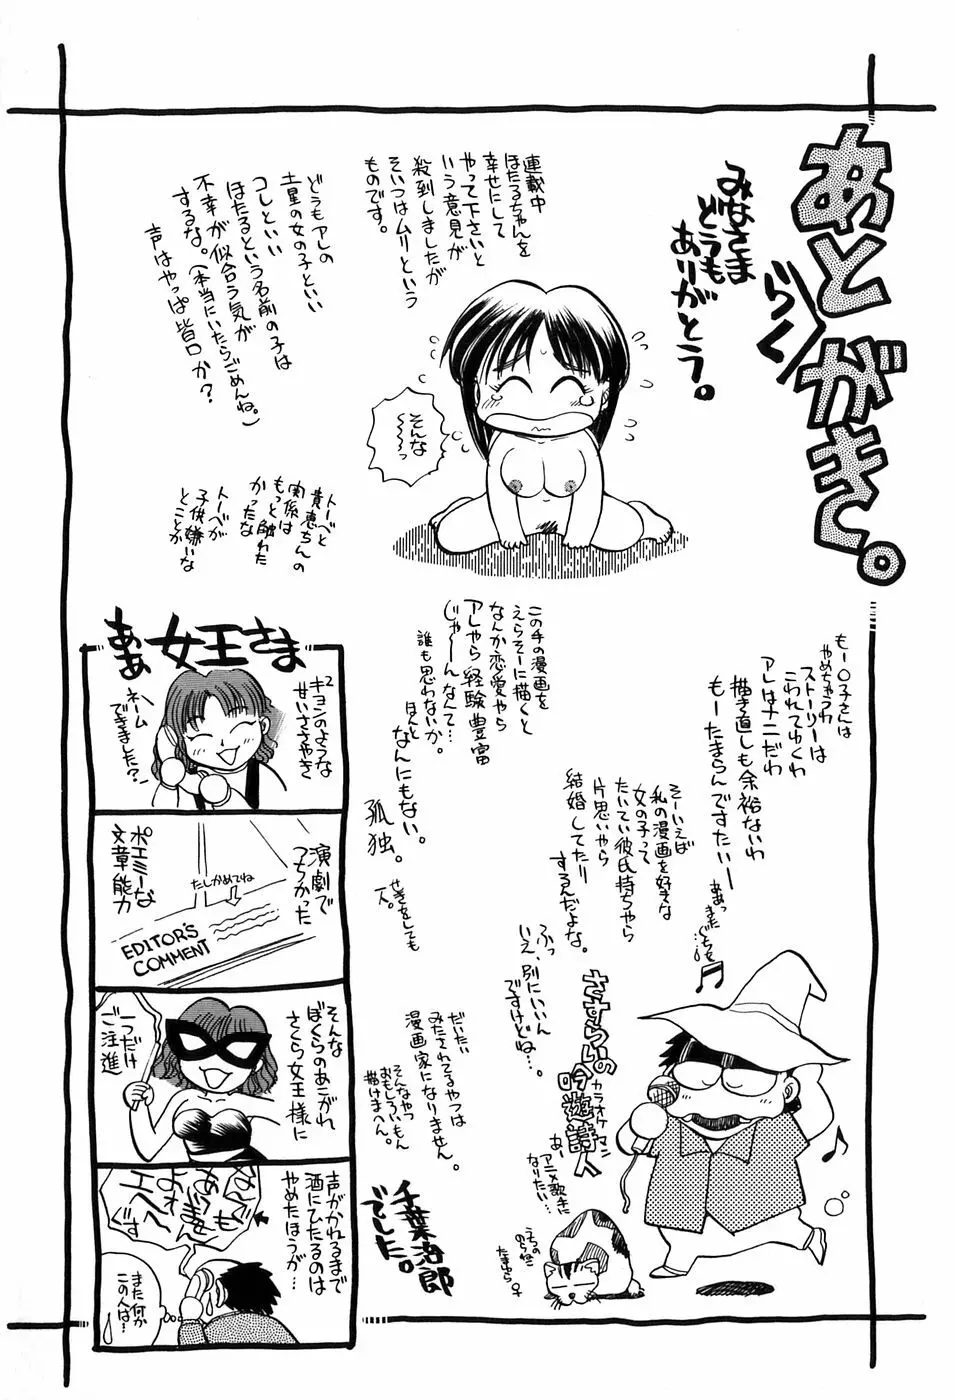 あとがき。
らく
みなさま
どうも
ありがとう。
連載中
ほたるちゃんを
幸せにして
やって下さいと
いう意見が
殺到しましたが
そいつはムリという
ものです。
そんな
〜〜〜っ
どうもアレの
土星の女の子といい
コレといい
ほたるという名前の子は
不幸が似合う気が
するな。(本当にいたらごめんね。)
声はやっぱ皆口か?
トーベと
貴恵ちんの
関係は
もっと触れた
かったな
トーベが
子供嫌いな
とことか
もー○子さんは
やめちゃうわ
ストーリーは
こわれてゆくわ
アレはナニだわ
描き直しも余裕ないわ
もーたまらんですたいー
ああっ
また
ぐちを
そーいえば
私の漫画を好きな
女の子って
たいてい彼氏持ちやら
片思いやら
結婚してたり
するんだよな。
ふっ
いえ、別にいいん
ですけどね…。
この手の漫画を
えらそーに描くと
なんか恋愛やら
アレやら経験豊富
じゃーんなんて…
誰も思わないか。
ほんと
なんにもない。
孤独。
せきをしても
一人。
だいたい
みたされてるやつは
漫画家になりません。
そんなやつ
おもしろいもん
描けまへん。
さすらいの
吟遊詩人
カラオケマン
あー
アニメ歌手に
なりたい…
うちの
のら猫
たまゆら♀
千葉治郎
でした。
ああ女王さま
キョン²のような
甘いささやき
ネーム
できました?
演劇で
つちかった
ポエミーな
文章能力
たしかめてね
EDITOR'S
COMMENT
そんな
ぼくらのあこがれ
さくら女王様に
一つだけ
ご注進
声がかれるまで
酒にひたるのは
やめたほうが…
また何か
この人は…